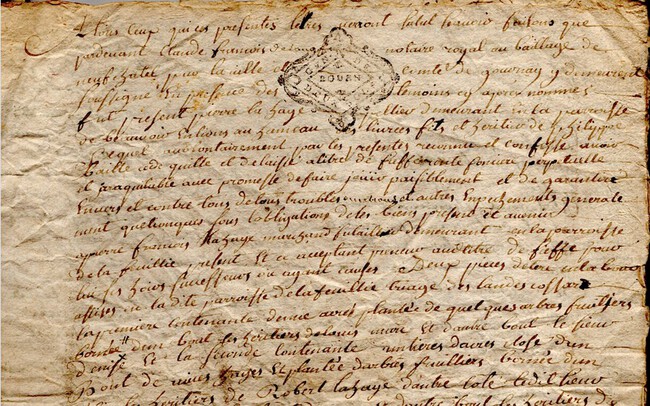 A tous ceux qui ces presentes letres verront salut scavoir faisons que
pardevant Claude francois de notaire royal au bailliage de
neufchatel pour la ville comté de gournay y demeurant
soussigné En presence des temoins cy apres nommes
fut present pierre la haye demeurant En la parroisse
de beauvoir Enlions au hameau des livrees fils et heritier de Philippe
Lequel vollontairement par les presentes reconnu et confesse avoir
Baillé cedé quitté et delaissé a titre de fieffe rente fonciere perpetuelle
et iraquitable avec promesse de faire jouir paisiblement et de garantir
Envers et contre tous de tous troubles evictions et autres Empechements generale
ment quelconques sous l'obligations de tes biens present et avenir
a pierre francois la haye marchand futailler demeurant en la parroisse
de la feuillie present Et ce acceptant preneur audit titre de fieffe pour
lui ses hoirs successeurs ou ayant causes Deux pieces de terre en labour
assises en la dite parroisse de la feuillie triage des landes
la premiere contenante demie acre plantée de quelques arbres fruitiers
bornée d'un bout les heritiers de louis marc Et d'autre bout le sieur
Et la seconde contenante un tiers d'acre close d'un
Bout de vives hayes Et plantée d'arbres fruitiers bornée d'un
les heritiers de Robert la haye d'autre coté ledit sieur
d'autre bout les heritiers de